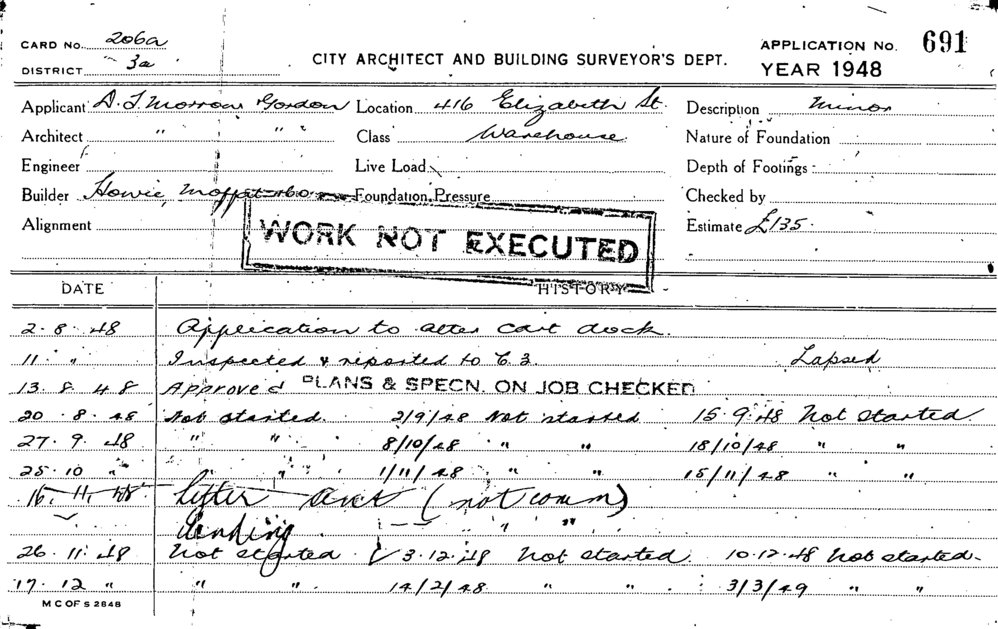 CARD NO. 206a
DISTRICT 3a
CITY ARCHITECT AND BUILDING SURVEYOR'S DEPT.
APPLICATION NO. 691
YEAR 1948
Applicant A. J. Morrow Gordon Location 416 Elizabeth St. Description Minor
Architect " " " Class Warehouse Nature of Foundation
Engineer Live Load Depth of Footings
Builder Howie, Moffat & Co Foundation Pressure Checked by
Alignment Estimate £135.
WORK NOT EXECUTED
DATE HISTORY
2.8.48 Application to alter cart dock.
11 " " Inspected & reported to C.3. Lapsed
13.8.48 Approved PLANS & SPECN. ON JOB CHECKED
20.8.48 Not started. 2/9/48 Not started 15.9.48 Not started
27.9.48 " " 8/10/48 " " 18/10/48 " "
25.10 " " " 1/11/48 " " 15/11/48 " "
16.11.48 letter (not comm)
" "
26.11.48 Not started 3.12.48 Not started. 10.12.48 Not started.
17.12 " " " 14/2/48 " " 3/3/49 " "
M C OF S 2848